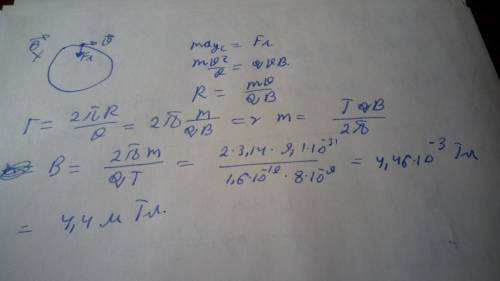 B⃗ x v⃗ Fл
maцс = Fл.
mv²/R = qvB.
R = mv/qB
T = 2πR/v = 2π m/qB => m = TqB/2π
B = 2πm/qT = 2·3,14·9,1·10⁻³¹/1,6·10⁻¹⁹·8·10⁻⁹ = 4,46·10⁻³ Тл
= 4,4 м Тл.